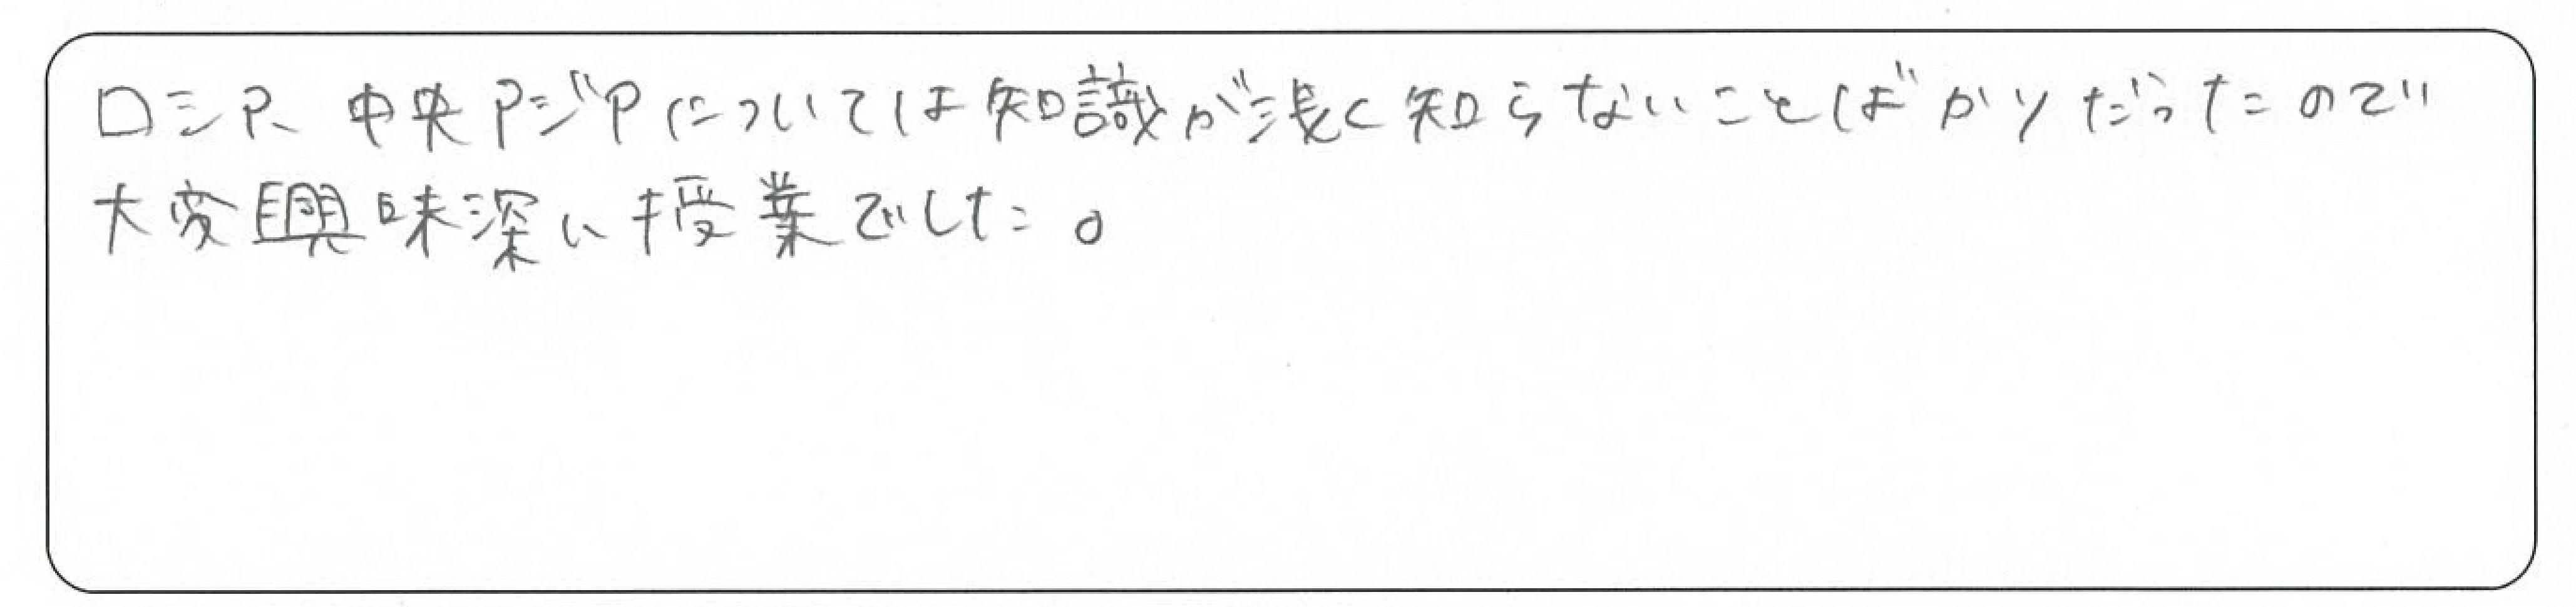 ロシア、中央アジアについては知識が浅く知らないことばかりだったので
大変興味深い授業でした。